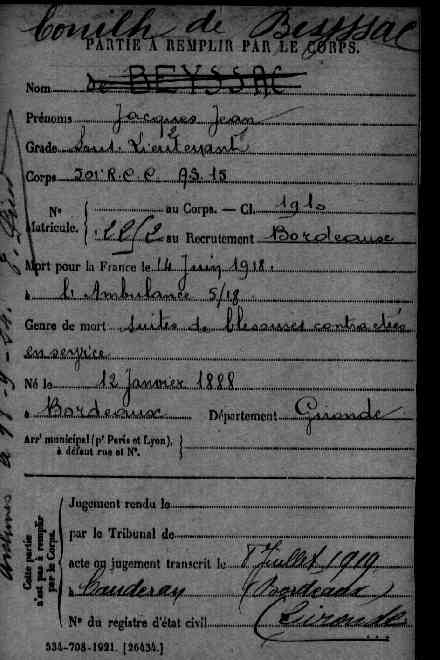 Conilh de Beyssac
PARTIE A REMPLIR PAR LE CORPS.
Nom de BEYSSAC
Prénoms Jacques Jean
Grade Sous-Lieutenant
Corps 501e R.C.C. AS.15
Nº Matricule. au Corps. — Cl. 1910
au Recrutement Bordeaux
Mort pour la France le 14 Juin 1918.
à l'Ambulance 5/18
Genre de mort Suites de blessures contractées
en service
Né le 12 Janvier 1888
à Bordeaux Département Gironde
Arrt municipal (pr Paris et Lyon),
à défaut rue et Nº.
Cette partie
n'est pas à remplir
par le Corps.
Jugement rendu le
par le Tribunal de
acte ou jugement transcrit le 8 Juillet 1919
à Caudéran (Bordeaux)
Nº du registre d'état civil (Gironde)
534-708-1921. [26434.]